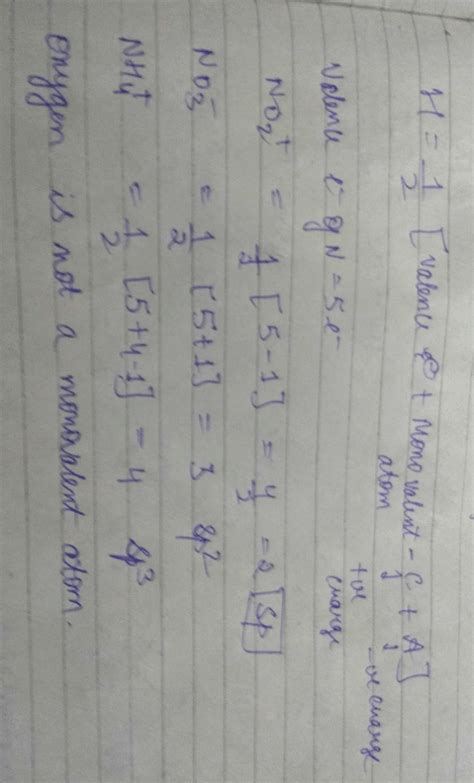 H = 1/2 [Valence e⁻ + Monovalent atom - C + A]
+ve charge
-ve charge
Valence e⁻ of N = 5e⁻
NO₂⁺ = 1/2 [5-1] = 4/2 = 2 [sp]
NO₃⁻ = 1/2 [5+1] = 3 sp²
NH₄⁺ = 1/2 [5+4-1] = 4 sp³
Oxygen is not a monovalent atom.